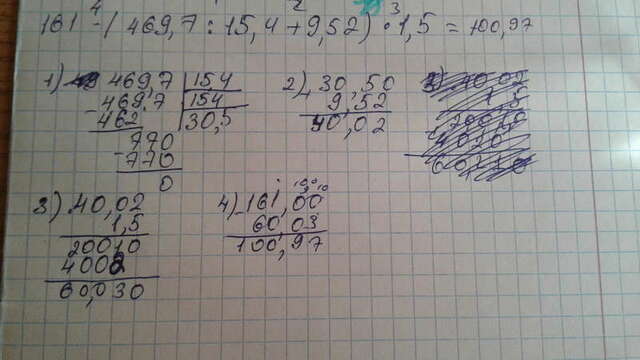 4 1 2 3
161 - (469,7 : 15,4 + 9,52) · 1,5 = 100,97
1) 469,7 | 154
- 469,7 | 154
462 | 30,5
- 770
770
0
2) + 30,50
9,52
40,02
3) 40,02
1,5
20010
4002
60,030
4) - 161,00
60,03
100,97